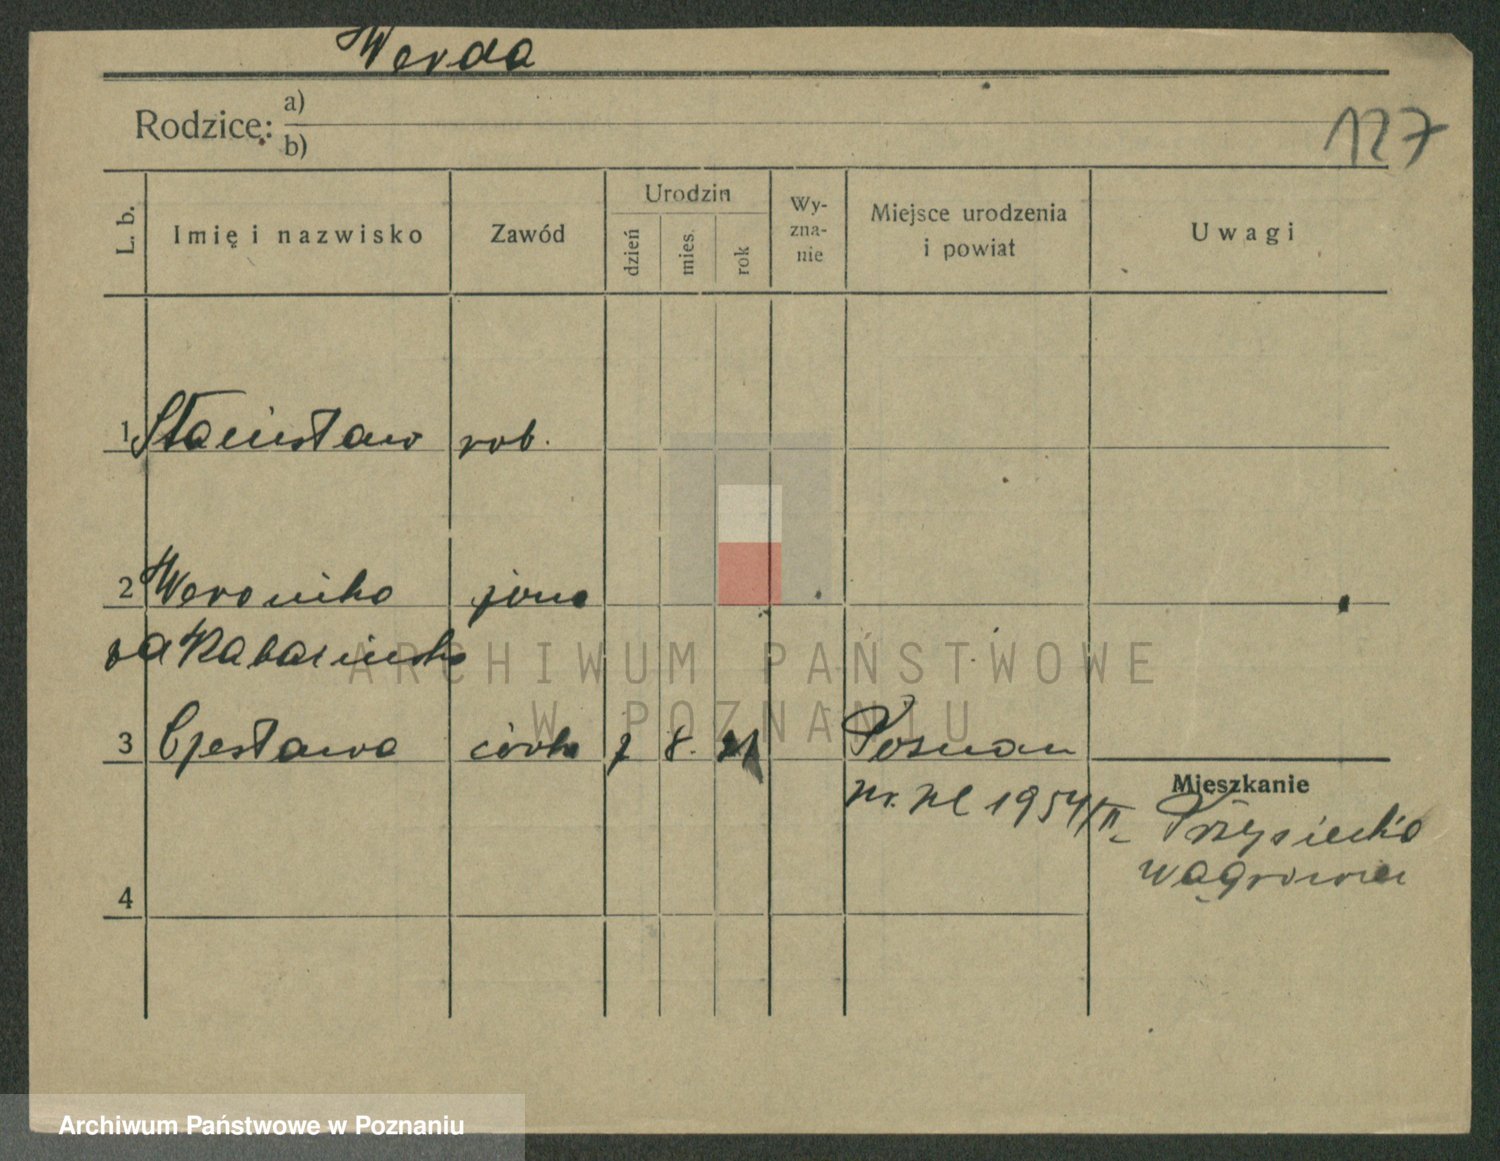 Werda
Rodzice: a)
b)
127
L. b.
Imię i nazwisko
Zawód
Urodzin
dzień
mies.
rok
Wy-
zna-
nie
Miejsce urodzenia
i powiat
Uwagi
1 Stanisław rob.
2 Weronika żona
3 Czesława córka 7 8. 21 Poznań
Nr. 1954/II
Mieszkanie
Przysieka
Wągrowiec
4
ARCHIWUM PAŃSTWOWE
W POZNANIU
Archiwum Państwowe w Poznaniu